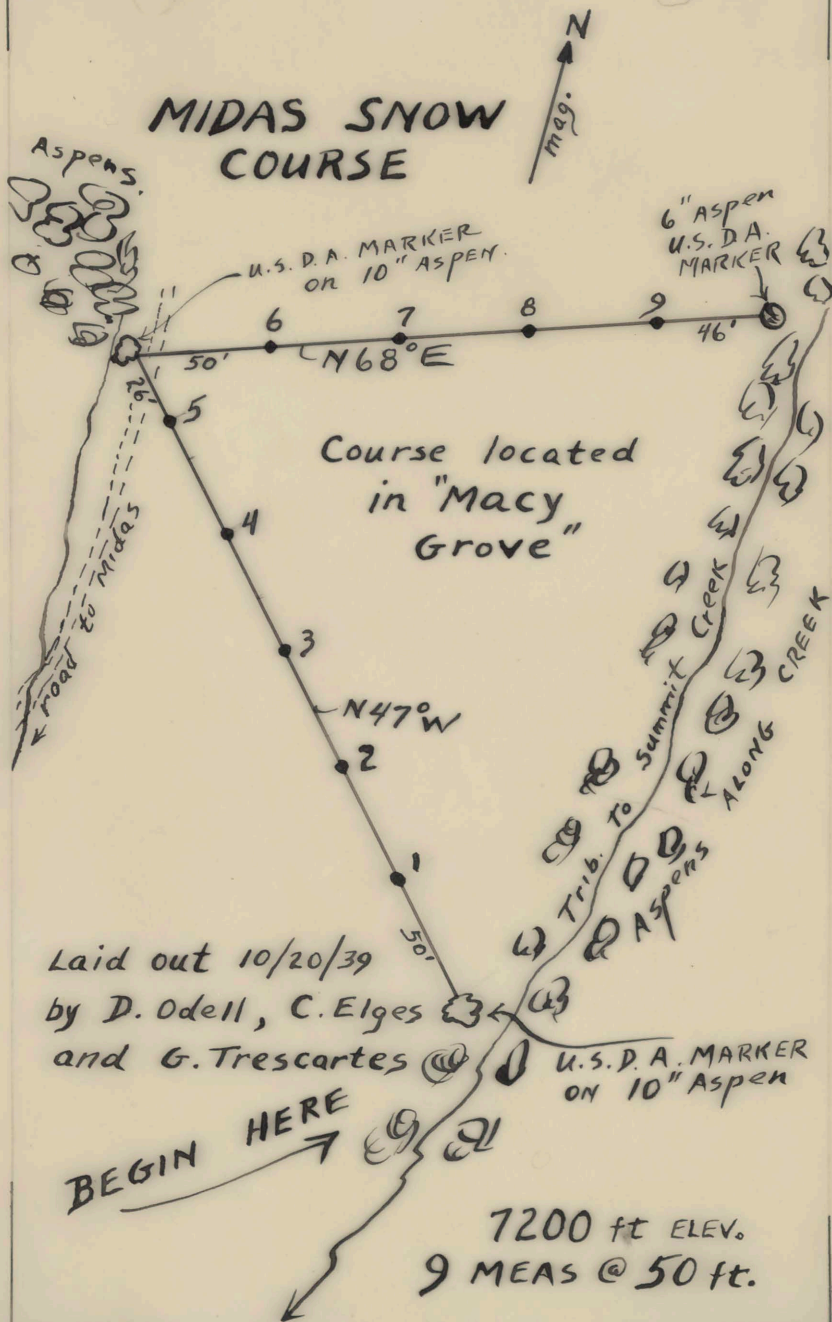 N
mag.
MIDAS SNOW
COURSE
Aspens.
U.S.D.A. MARKER
on 10" ASPEN.
6" Aspen
U.S.D.A.
MARKER
6
7
8
9
50'
N68°E
46'
26'
5
Course located
in "Macy
Grove"
4
road to Midas
3
N47°W
2
Trib. to Summit Creek
Aspens ALONG CREEK
1
50'
Laid out 10/20/39
by D. Odell, C. Elges
and G. Trescartes
U.S.D.A. MARKER
ON 10" Aspen
BEGIN HERE
7200 ft ELEV.
9 MEAS @ 50 ft.